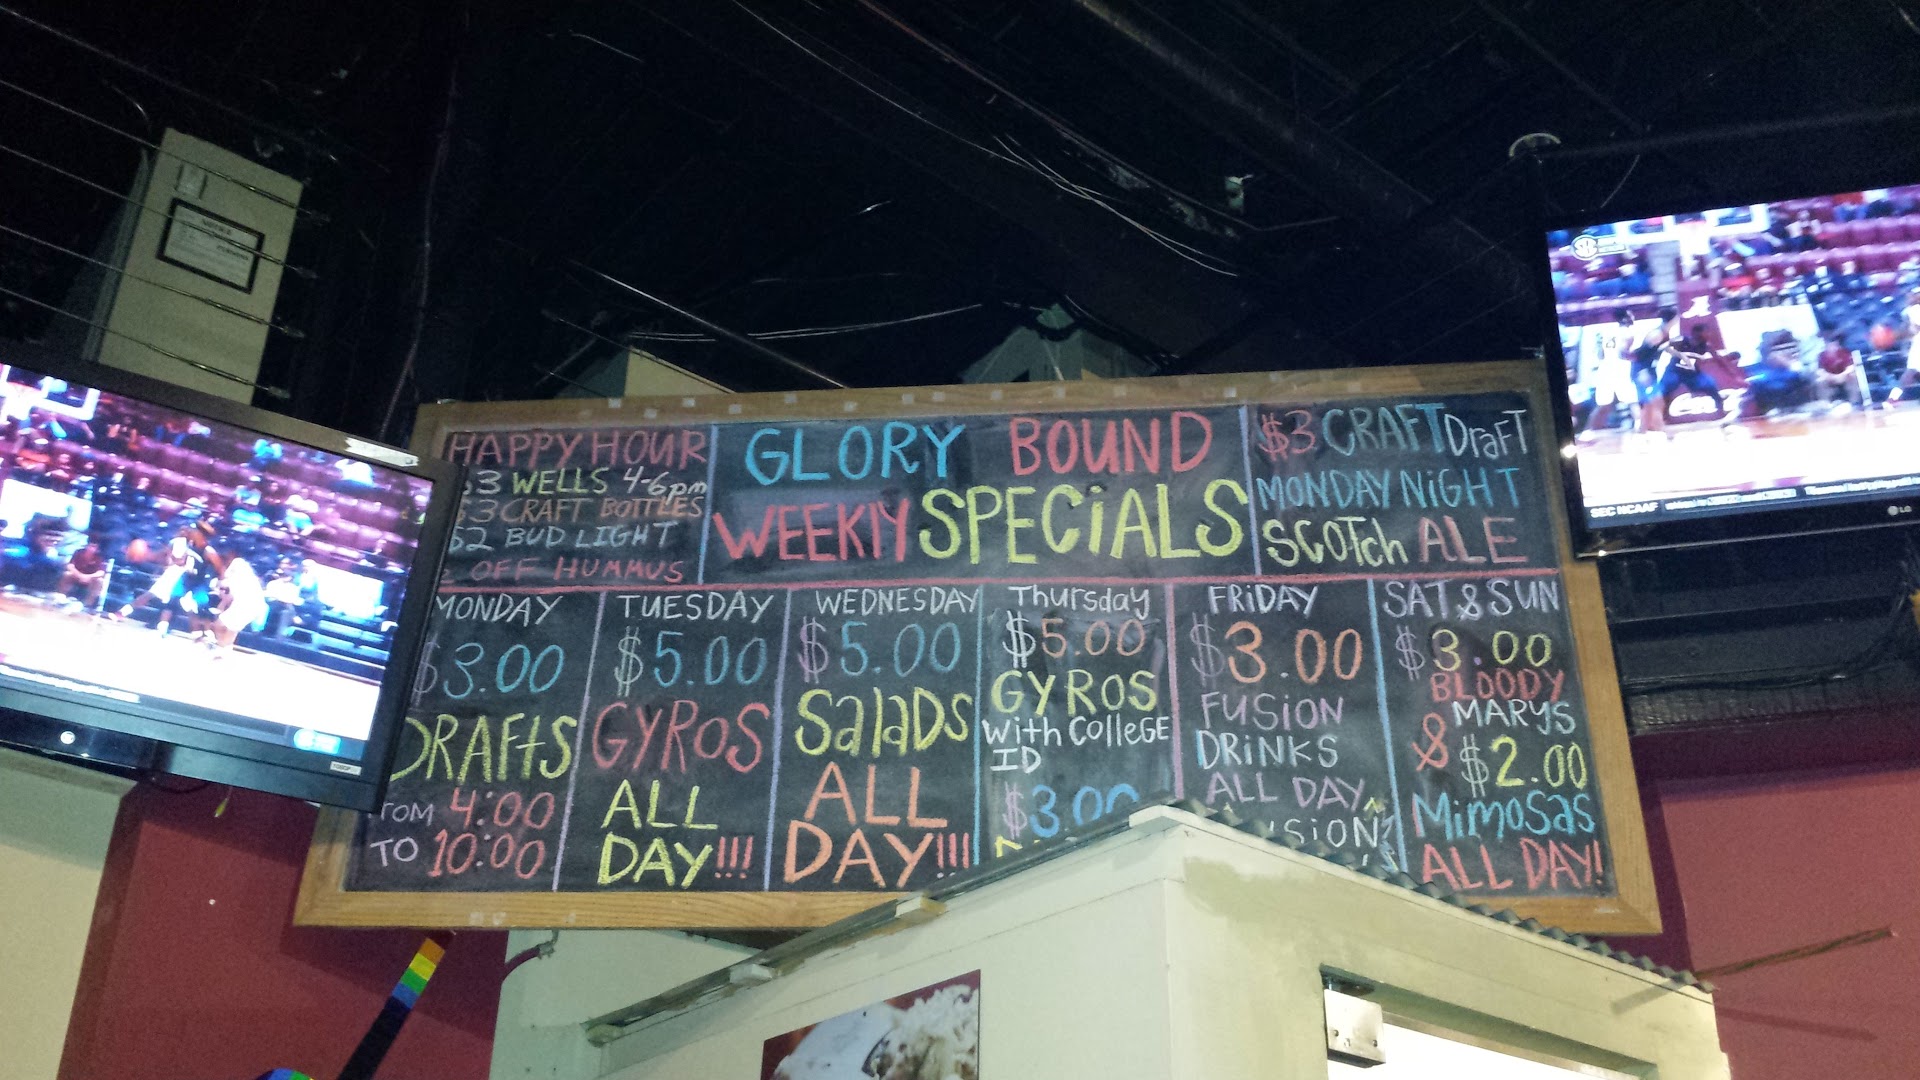 HAPPY HOUR
$3 WELLS 4-6pm
$3 CRAFT BOTTLES
$2 BUD LIGHT
OFF HUMMUS
GLORY BOUND
WEEKLY SPECiALS
$3 CRAFT DraFT
MONDAY NiGHT
SCOTch ALE
MONDAY
$3.00
DRAFtS
4:00
TO 10:00
TUESDAY
$5.00
GYROS
ALL
DAY!!!
WEDNESDAY
$5.00
SalaDS
ALL
DAY!!!
Thursday
$5.00
GYROS
With COllEGE
ID
$3.00
FRiDAY
$3.00
FUSiON
DRiNKS
ALL DAY
SAT & SUN
$3.00
BLOODY
MARYS
& $2.00
MiMOSas
ALL DAY!
SEC NCAAF
LG